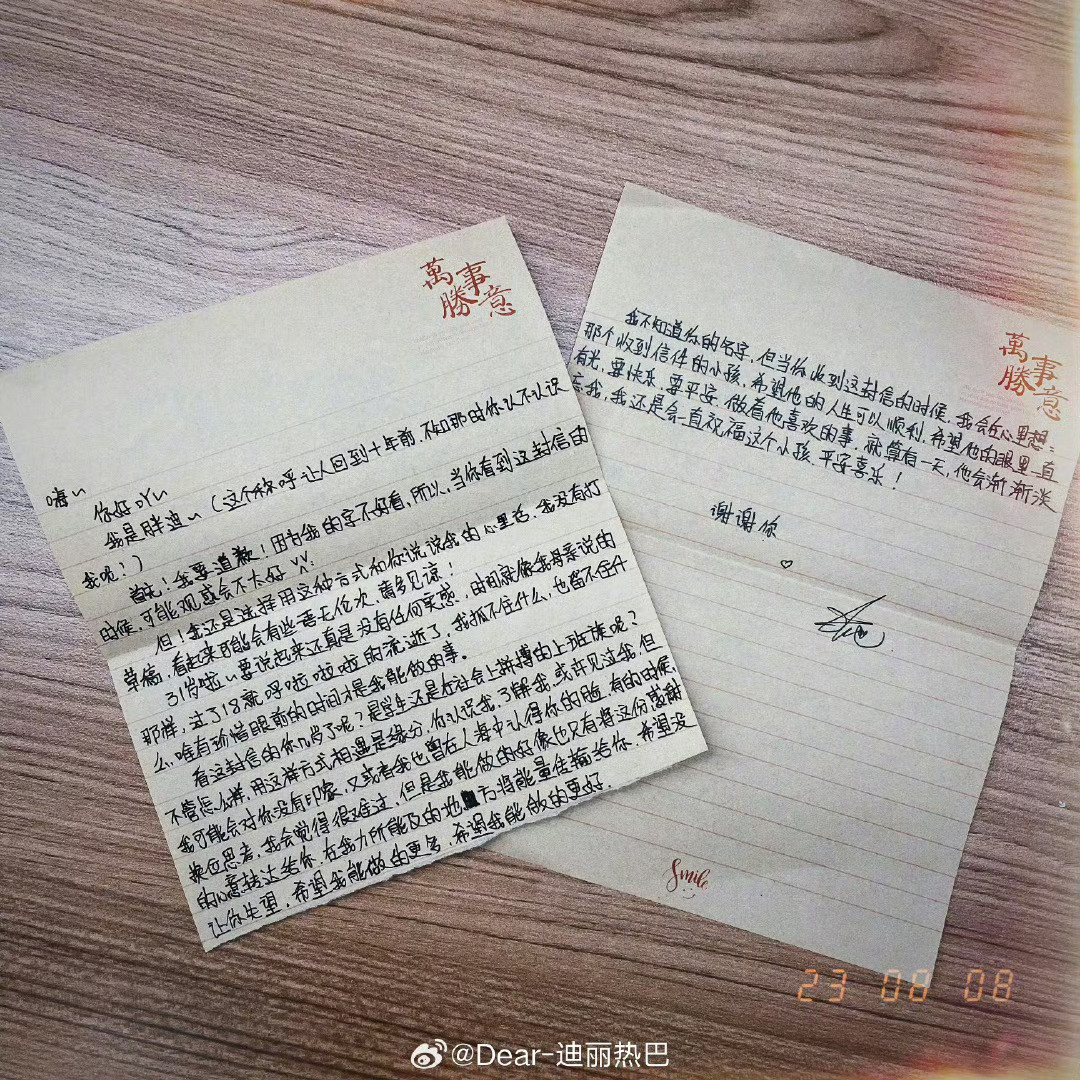 萬事
勝意
嗨~
你好吖~
我是胖迪~（这个称呼让人回到十年前，不知那时你认不认识
我呢？）
首先！我要道歉！因为我的字不好看，所以，当你看到这封信的
时候，可能观感会不太好
但！我还是选择用这种方式和你说说我的心里话，我没有打
草稿，看起来可能会有些语无伦次，请多见谅！
31岁啦~要说起来还真是没有任何实感，时间就像我母亲说的
那样，过了18就呼啦啦啦的流逝了，我抓不住什么，也留不住什
么，唯有珍惜眼前的时间才是我能做的事。
看这封信的你几岁了呢？是学生还是在社会上拼搏的上班族呢？
不管怎么样，用这样方式相遇是缘分，你认识我，了解我，或许见过我，但
我可能会对你没有印象，又或者我也曾在人海中认得你的脸，有的时候
换位思考，我会觉得很难过，但是我能做的好像也只有将这份感谢
的心意转达给你，在我力所能及的地方将能量传输给你，希望没
让你失望，希望我能做的更多，希望我能做的更好。
萬事
勝意
我不知道你的名字，但当你收到这封信的时候，我会在心里想：
那个收到信件的小孩，希望他的人生可以顺利，希望他的眼里一直
有光，要快乐，要平安，做着他喜欢的事，就算有一天，他会渐渐淡
忘我，我还是会一直祝福这个小孩，平安喜乐！
谢谢你
Smile
23 08 08
@Dear-迪丽热巴